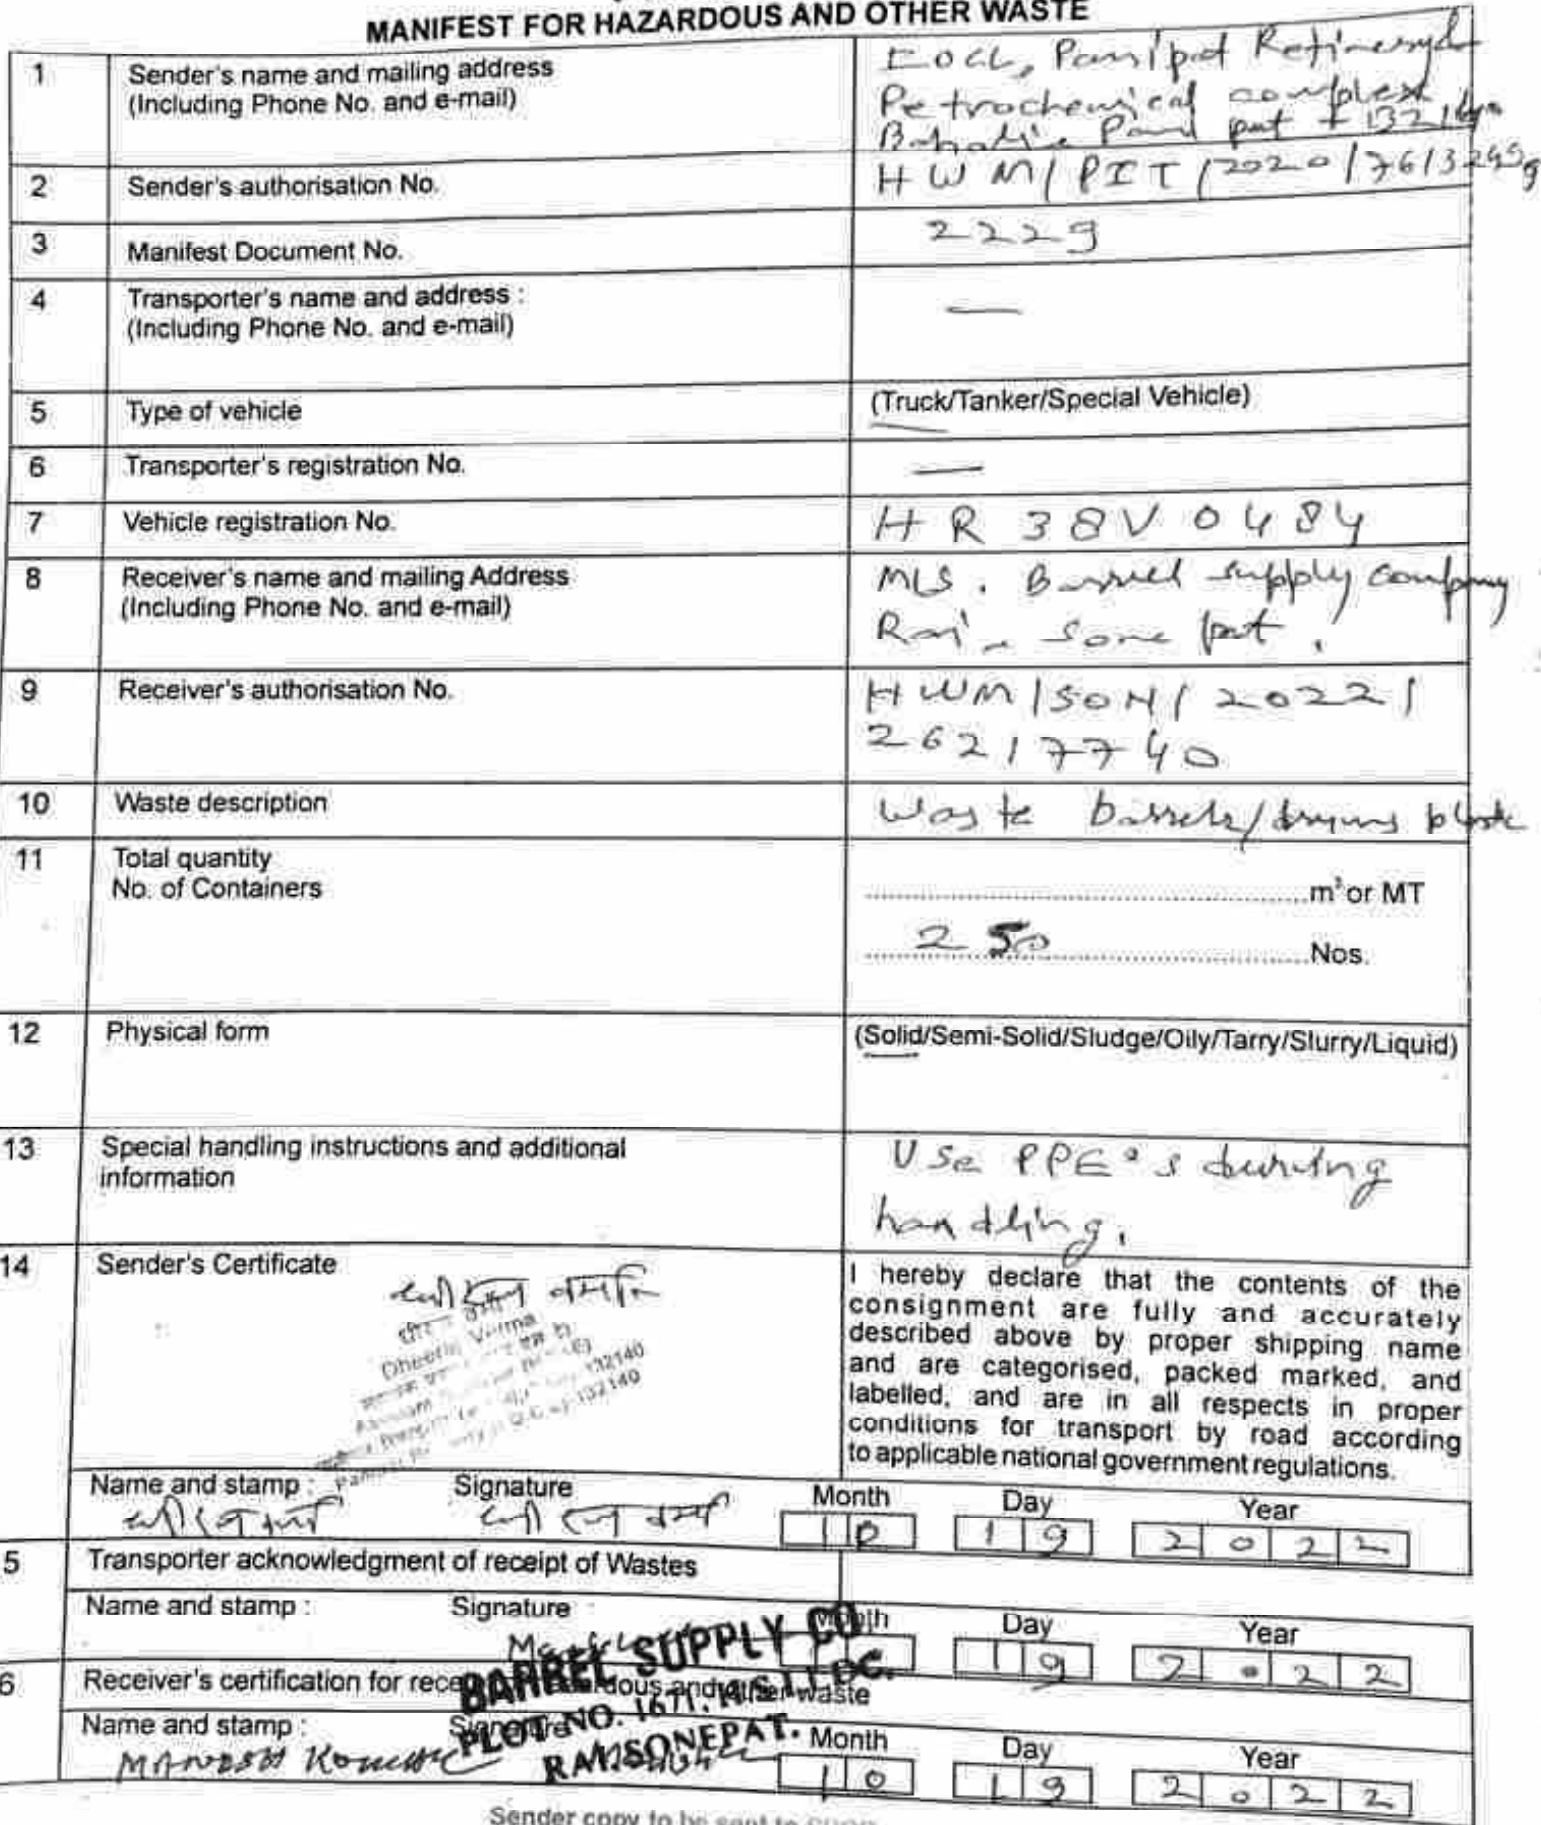 MANIFEST FOR HAZARDOUS AND OTHER WASTE
1 Sender's name and mailing address
(Including Phone No. and e-mail)
IOCL, Panipat Refinery &
Petrochemical complex
Panipat
2 Sender's authorisation No. HWM/PIT/2020/
3 Manifest Document No. 2229
4 Transporter's name and address :
(Including Phone No. and e-mail) —
5 Type of vehicle (Truck/Tanker/Special Vehicle)
6 Transporter's registration No. —
7 Vehicle registration No. HR 38V 0484
8 Receiver's name and mailing Address
(Including Phone No. and e-mail)
M/S. Barrel supply company
Rai - Sonepat.
9 Receiver's authorisation No. HWM/SON/2022/
26217740
10 Waste description Waste barrels/drums
11 Total quantity
No. of Containers
m³ or MT
250 Nos.
12 Physical form (Solid/Semi-Solid/Sludge/Oily/Tarry/Slurry/Liquid)
13 Special handling instructions and additional
information
Use PPE's during
handling.
14 Sender's Certificate
Dheeraj Verma
132140
132140
I hereby declare that the contents of the
consignment are fully and accurately
described above by proper shipping name
and are categorised, packed marked, and
labelled, and are in all respects in proper
conditions for transport by road according
to applicable national government regulations.
Name and stamp : Signature Month Day Year
10 19 2022
5 Transporter acknowledgment of receipt of Wastes
Name and stamp : Signature Month Day Year
19 2022
6 Receiver's certification for dous and other waste
BARREL SUPPLY CO
PLOT NO. 1671, H.S.I.I.DC.
RAI, SONEPAT.
Name and stamp : Signature Month Day Year
10 19 2022
Sender copy to be sent to